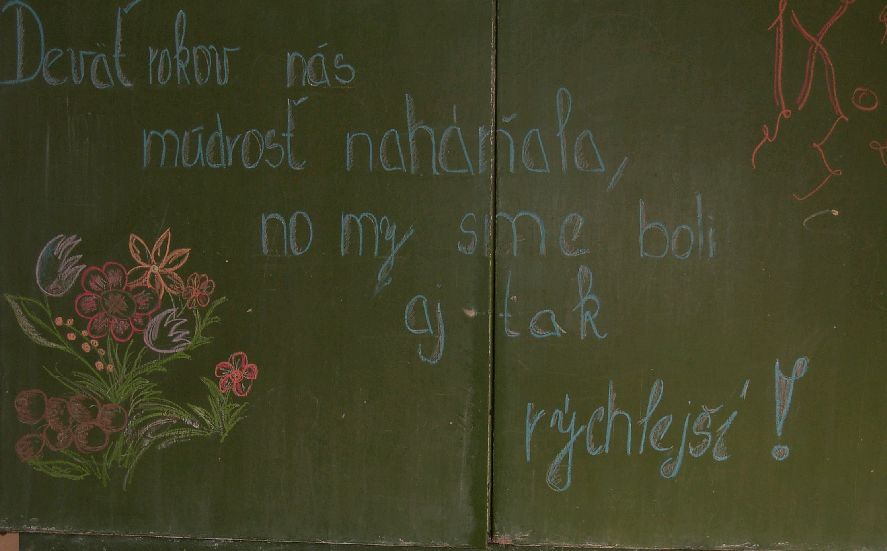 Deväť rokov nás
múdrosť naháňala,
no my sme boli
aj tak
rýchlejší!
IX.